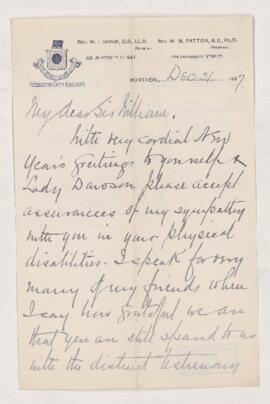 REV. W. I. SHAW, D.D., LL.D.
PRINCIPAL
REV. W. M. PATTON, B.D., PH.D.
228 UNIVERSITY STREET.
UNIVERSITY STREET.
MONTREAL, Dec. 31 1897.
My dear Sir William,
With very cordial New
Year's Greetings to yourself &
Lady Dawson please accept
assurances of my sympathy
with you in your physical
disabilities. I speak for very
many of my friends when
I say how grateful we are
that you are still spared to us
with the distinct testimony